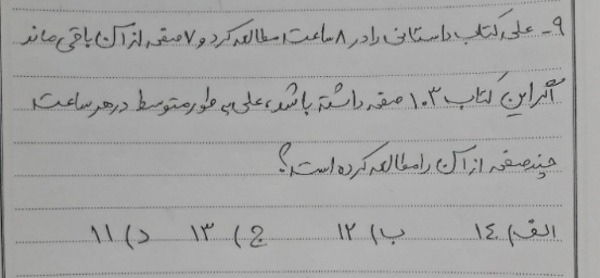 ۹- علی کتاب داستانی را در ۸ ساعت مطالعه کرد و ۷ صفحه از آن باقی ماند
اگر این کتاب ۱۰۳ صفحه داشته باشد، علی به طور متوسط در هر ساعت
چند صفحه از آن را مطالعه کرده است؟
الف) ۱٤ ب) ۱۲ ج) ۱۳ د) ۱۱